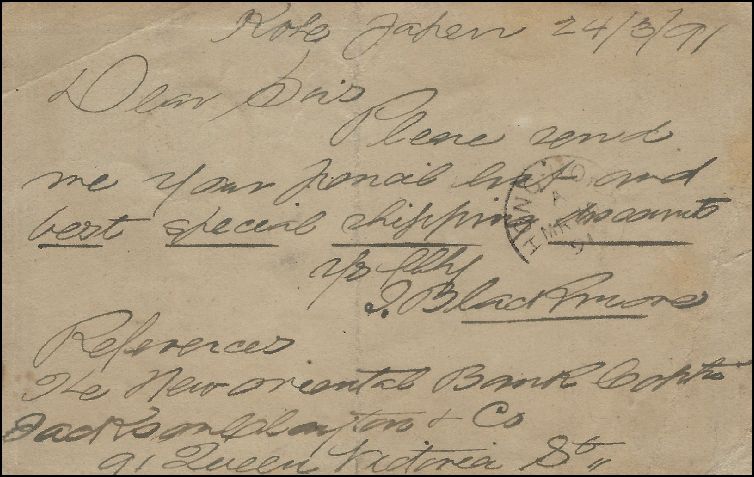 Kobe Japan 24/3/91
Dear Sirs
Please send
me your list and
best special shipping discounts
Yrs ffly
J. Blackmore
References
The New Oriental Bank Corptn
Jackson & Co
91 Queen Victoria St